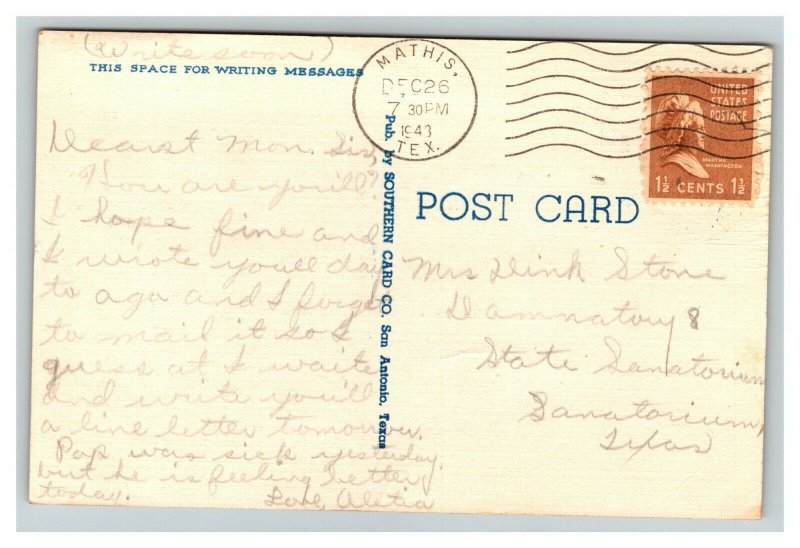 (Write soon)
THIS SPACE FOR WRITING MESSAGES
Dearest Mom. Sis,
How are you'll?
I hope fine and
I wrote youll day
to ago and I forgot
to mail it so I
guess at I waite
and write you'll
a line letter tomorrow.
Pop was sick yesterday,
but he is feeling better
today.
Love, Aletia
Pub. by SOUTHERN CARD CO. San Antonio, Texas
MATHIS,
DEC 26
7 30 PM
1943
TEX.
UNITED
STATES
POSTAGE
MARTHA
WASHINGTON
1½ CENTS 1½
POST CARD
Mrs Stone
Damnatory 8
State Sanatorium
Sanatorium,
Texas